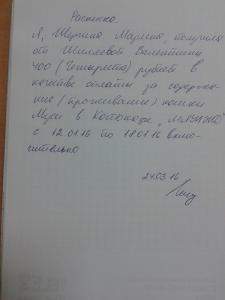 Расписка.
Я, Щукина Марина, получила
от Шиляевой Валентины
400 (Четыреста) рублей в
качестве оплаты за содержа-
ние (проживание) кошки
Муси в Котокафе
с 12.01.16 по 18.01.16 вклю-
чительно
24.03.16